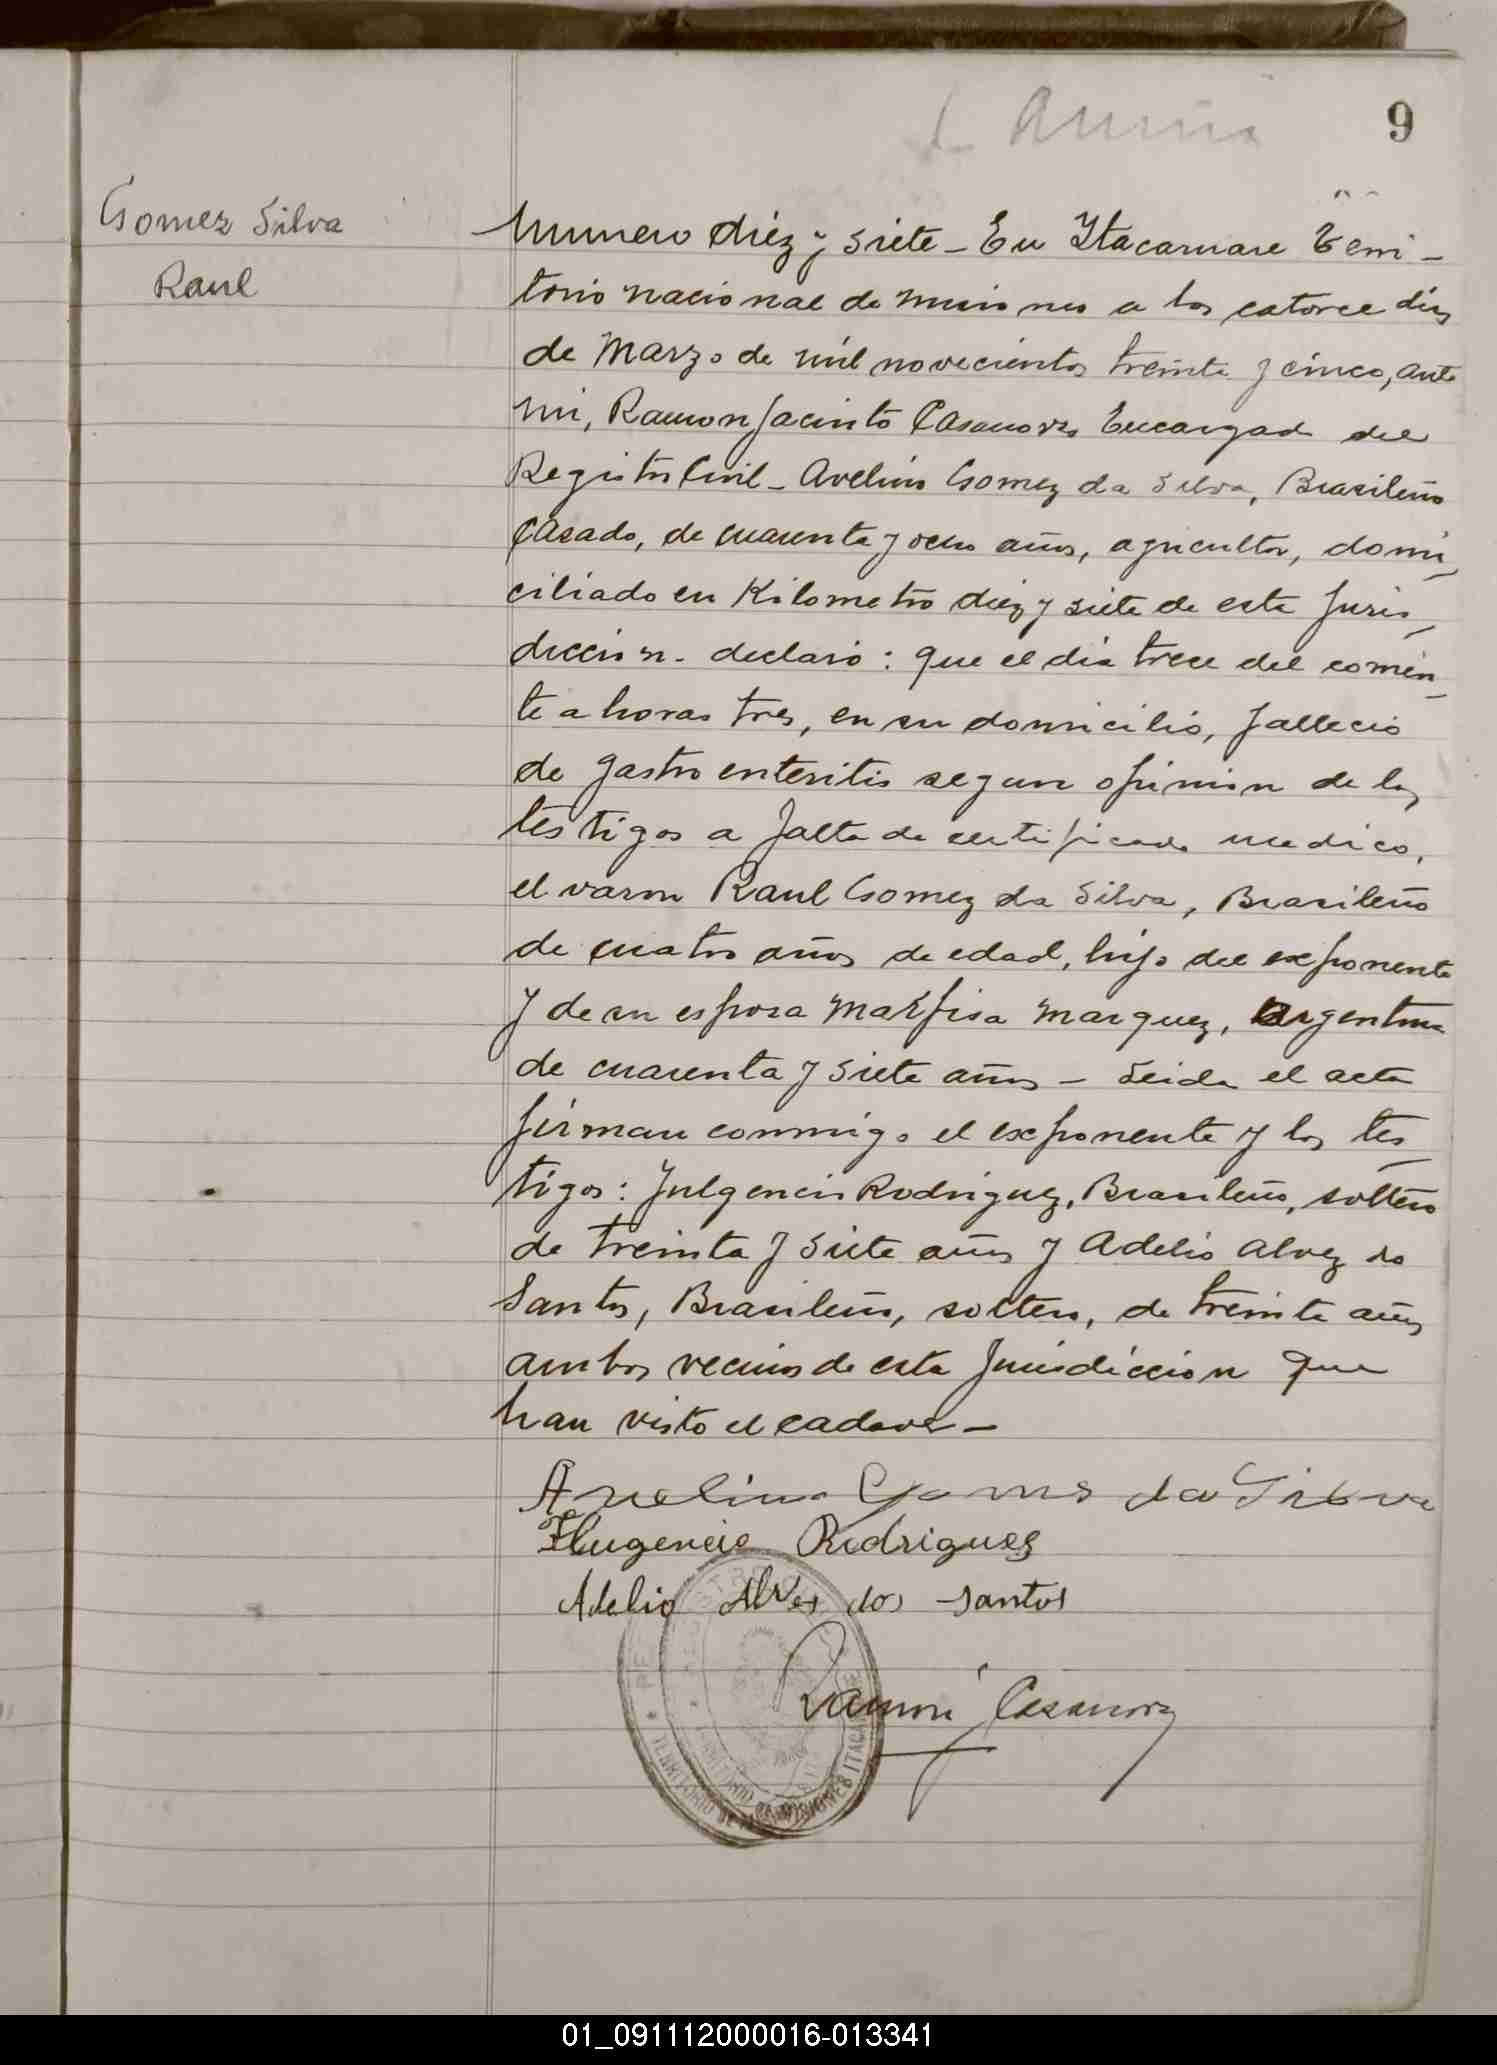 9
Gomez Silva
Raul
Numero diez y siete - En Itacaruare Terri-
torio nacional de Misiones a los catorce dias
de Marzo de mil novecientos treinta y cinco, ante
mi, Ramon Jacinto Casanova Encargado del
Registro Civil - Avelino Gomez da Silva, Brasileño
Casado, de cuarenta y ocho años, agricultor, domi-
ciliado en Kilometro diez y siete de esta Juris-
diccion - declaró: que el dia trece del corrien-
te a horas tres, en su domicilio, fallecio
de gastro enteritis segun opinion de los
testigos a falta de certificado medico,
el varon Raul Gomez da Silva, Brasileño
de cuatro años de edad, hijo del exponente
y de su esposa Marfisa Marquez, Argentina
de cuarenta y siete años - Leida el acta
firman conmigo el exponente y los tes-
tigos: Fulgencio Rodriguez, Brasileño, soltero
de treinta y siete años y Adelio Alvez do
Santos, Brasileño, soltero, de treinta años
ambos vecinos de esta Jurisdiccion que
han visto el cadaver -
Avelino Gomes da Silva
Flugencio Rodrigues
Adelio Alves dos Santos
Ramon J Casanova
TERRITORIO DE MISIONES ITACARUARE
01_091112000016-013341